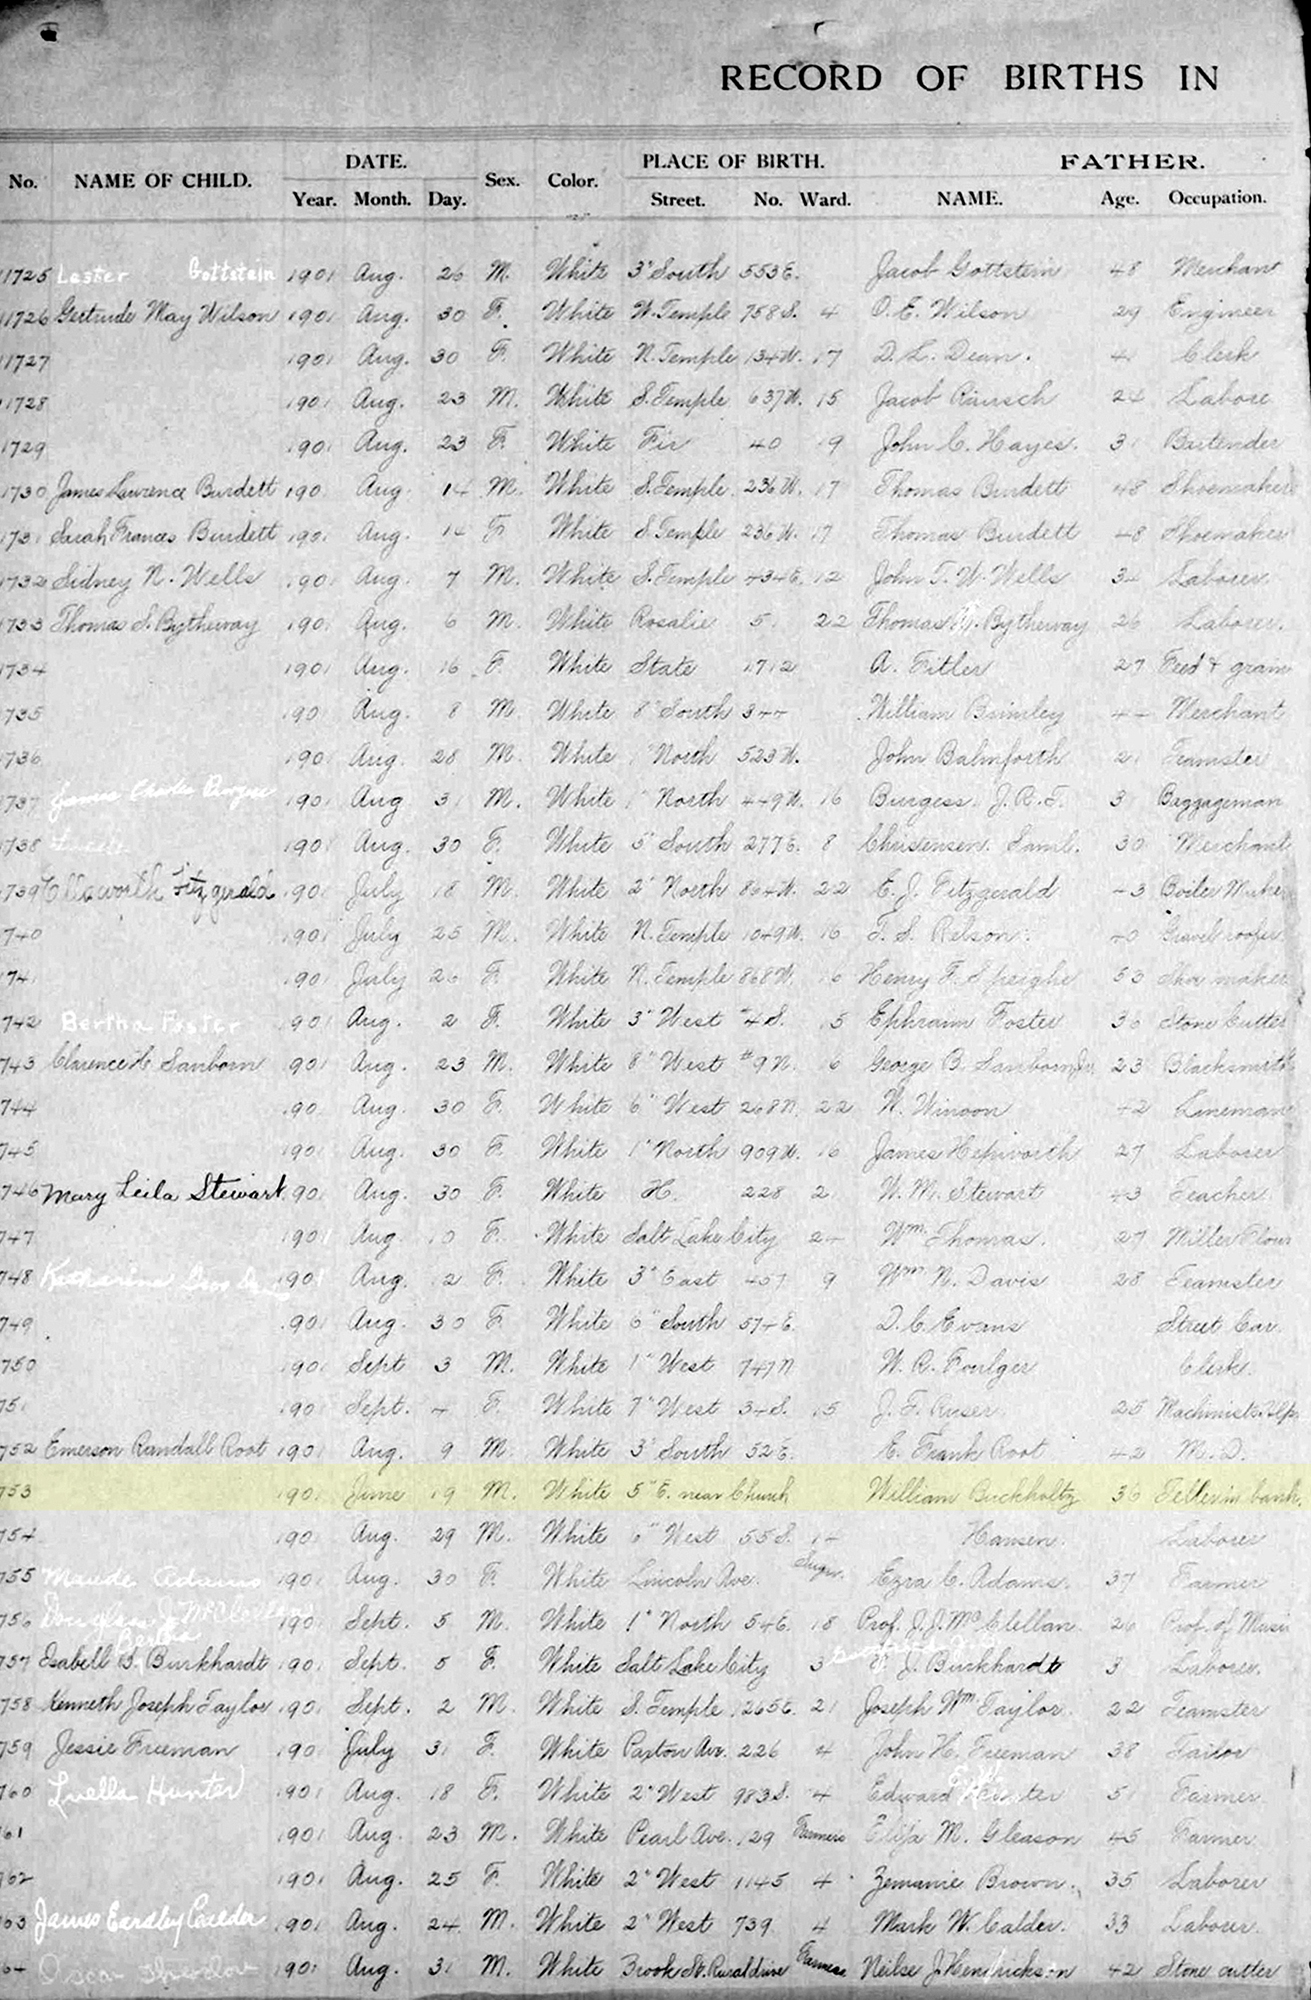 RECORD OF BIRTHS IN
DATE. PLACE OF BIRTH. FATHER.
No. NAME OF CHILD. Year. Month. Day. Sex. Color. Street. No. Ward. NAME. Age. Occupation.
1725 Lester Gottstein 1901 Aug. 26 M. White 3" South 553 E. Jacob Gottstein 48 Merchant
1726 Gertrude May Wilson 1901 Aug. 30 F. White W. Temple 758 S. 4 O. E. Wilson 29 Engineer
1727 1901 Aug. 30 F. White N. Temple 134 W. 17 D. L. Dean. 41 Clerk
1728 1901 Aug. 23 M. White S. Temple 637 W. 15 Jacob Rausch 24
1729 1901 Aug. 23 F. White Fir 40 19 John C. Hayes. 31 Bartender
1730 James Lawrence Burdett 1901 Aug. 14 M. White S. Temple. 236 W. 17 Thomas Burdett 48 Shoemaker
1731 Sarah Frances Burdett 1901 Aug. 14 F. White S. Temple 236 W. 17 Thomas Burdett 48 Shoemaker
1732 Sidney N. Wells 1901 Aug. 7 M. White S. Temple 434 E. 12 John T. W. Wells 34 Laborer.
1733 Thomas S. Bytheway 1901 Aug. 6 M. White Rosalie 5 22 Thomas Bytheway 26 Laborer.
1734 1901 Aug. 16 F. White State 1712 A. Fitler 27 Feed & grain
735 1901 Aug. 8 M. White 8" South 344 William Brimley 44 Merchant
1736 1901 Aug. 28 M. White 1" North 523 W. John Balmforth 21 Teamster
1737 James Charles Burgess 1901 Aug 31 M. White 1" North 449 W. 16 Burgess. J. R. T. 31 Baggageman
1738 1901 Aug. 30 F. White 5" South 277 E. 8 Christensen. Saml. 30 Merchant
739 Ellsworth Fitzgerald 1901 July 18 M. White 2" North 864 W. 22 E. J. Fitzgerald 43 Boiler Make
740 1901 July 25 M. White N. Temple 1049 W. 16 T. S. Relson. 40 Gravel roofer
741 1901 July 26 F. White N. Temple 868 W. 16 Henry F. Speighe 53 Shoe maker
742 Bertha Foster 1901 Aug. 2 F. White 3" West #4 S. 15 Ephraim Foster 36 Stone Cutter
743 Clarence H. Sanborn 1901 Aug. 23 M. White 8" West #9 N. 16 George B. Sanborn Jr. 23 Blacksmith
744 1901 Aug. 30 F. White 6" West 268 N. 22 W. 42 Lineman
745 1901 Aug. 30 F. White 1" North 909 W. 16 James Hepworth 27 Laborer
746 Mary Leila Stewart 1901 Aug. 30 F. White H. 228 21 W. M. Stewart 43 Teacher.
747 1901 Aug 10 F. White Salt Lake City 24 Wm. Thomas. 27 Miller Flour
748 Katharine 1901 Aug. 12 F. White 3" East 457 9 Wm. N. Davis 28 Teamster
749 1901 Aug. 30 F. White 6" South 574 E. D. C. Evans Street Car.
750 1901 Sept 3 M. White 1" West 747 N W. R. Foulger Clerk.
751 1901 Sept. 4 F. White 7" West 34 S. 15 J. F. Ryser. 25 Machinists. Hlpr.
752 Emerson Randall Root 1901 Aug. 9 M. White 3" South 52 E. E. Frank Root 42 M. D.
753 1901 June 19 M. White 5" E. near Church William Buckholtz 36 Teller in bank.
754 1901 Aug. 29 M. White 6" West 55 S. 14 Hansen. Laborer
755 Maude Adams 1901 Aug. 30 F. White Lincoln Ave. Sugar. Ezra C. Adams. 37 Farmer
756 Douglas J. McClellan 1901 Sept. 5 M. White 1" North 54 E. 18 Prof. J. J. McClellan. 26 Prof. of Music
757 Isabell B. Burkhardt 1901 Sept. 5 F. White Salt Lake City 3 J. Burkhardt 31 Laborer.
758 Kenneth Joseph Taylor 1901 Sept. 2 M. White S. Temple 1265 E. 21 Joseph Wm. Taylor. 22 Teamster
759 Jessie Freeman 1901 July 31 F. White Paxton Ave. 226 4 John H. Freeman 38 Tailor
760 Luella Hunter 1901 Aug. 18 F. White 2" West 983 S. 4 Edward Hunter 51 Farmer.
761 1901 Aug. 23 M. White Pearl Ave. 129 Farmers Eliza M. Gleason 45 Farmer
762 1901 Aug. 25 F. White 2" West 1145 4 Zemanie Brown. 35 Laborer
763 James Eardley Calder 1901 Aug. 24 M. White 2" West 739 4 Mark W. Calder. 33 Laborer.
764 Oscar Theodor 1901 Aug. 31 M. White Brook St. Rural drive Farmers Neilse J. Hendrickson 42 Stone cutter